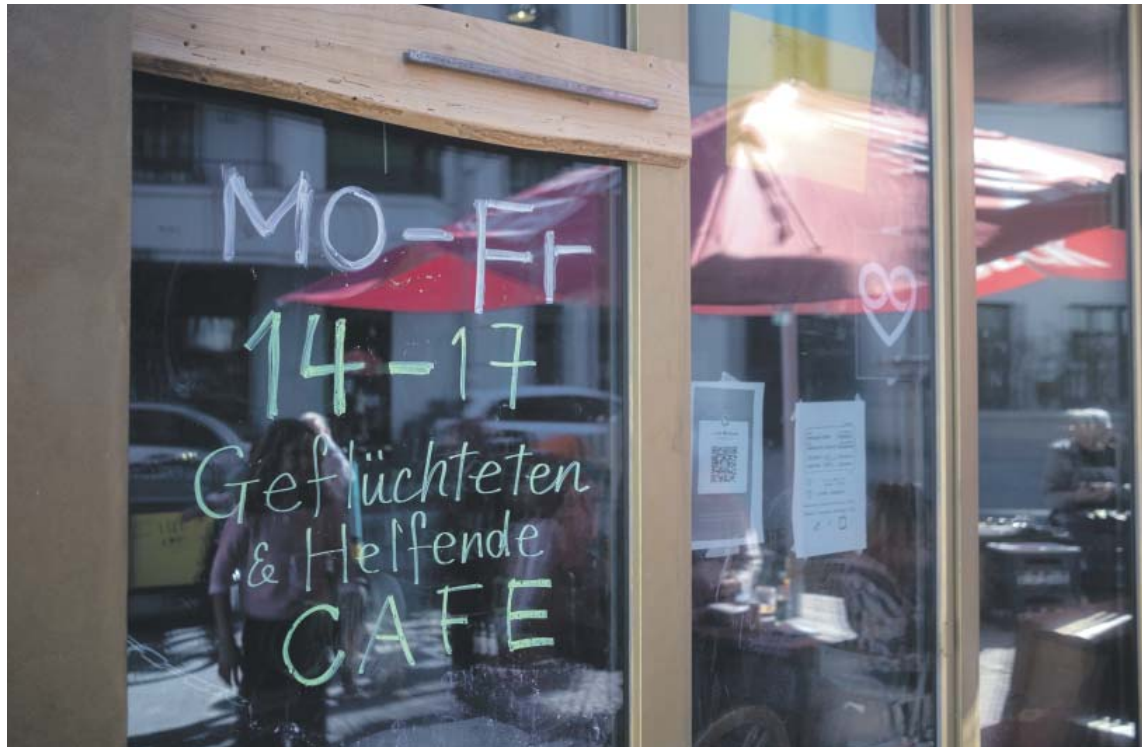 MO-Fr
14-17
Geflüchteten
& Helfende
CAFE